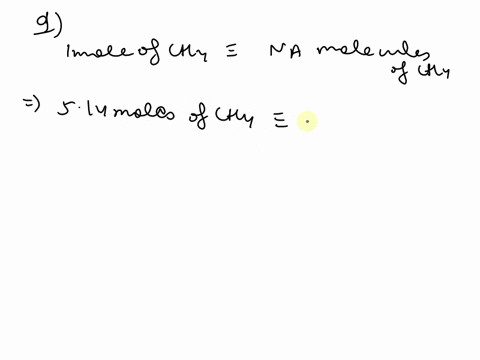 9)
1mole of CH4 ≡ NA molecules
of CH4
=> 5.14 moles of CH4 ≡